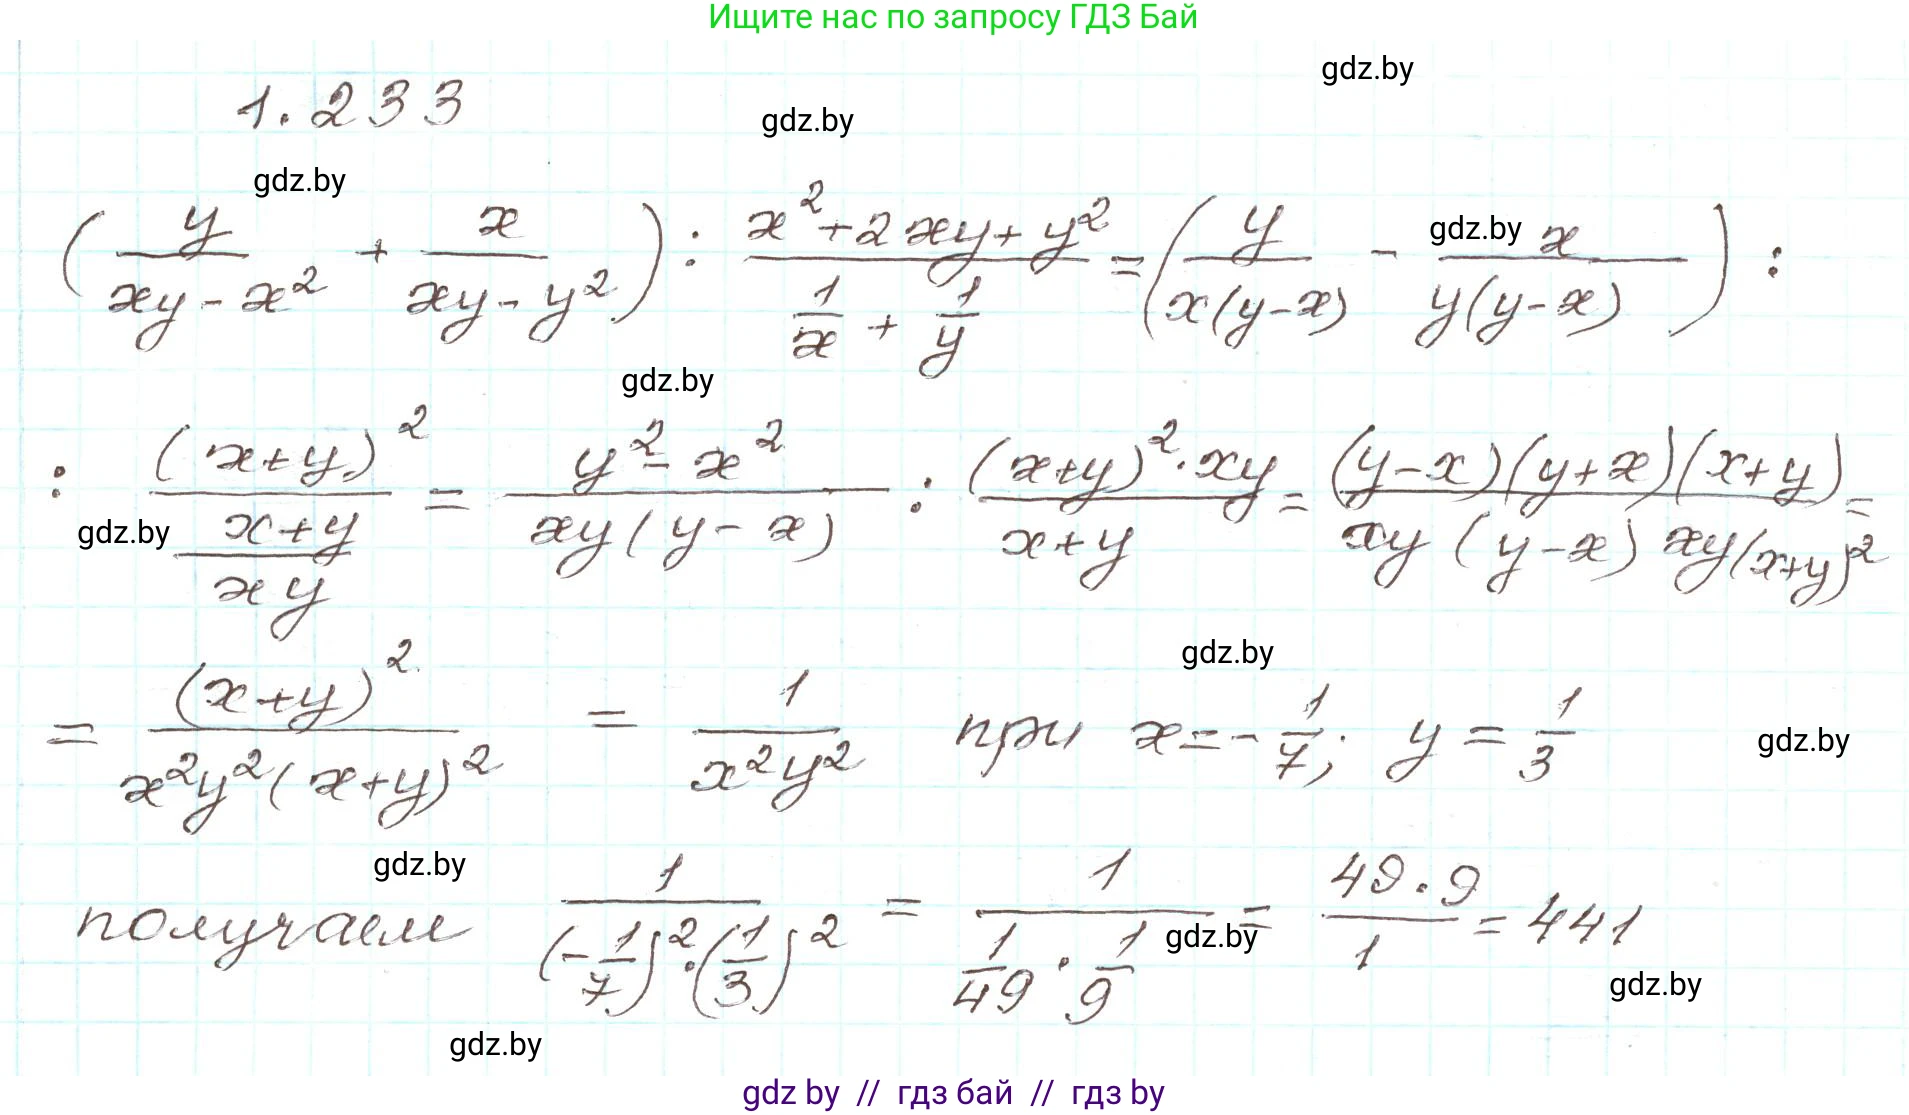 Ищите нас по запросу ГДЗ Бай
gdz.by
1.233
gdz.by
gdz.by
(y/(xy-x²) + x/(xy-y²)) : (x²+2xy+y²)/(1/x + 1/y) = (y/(x(y-x)) - x/(y(y-x))) :
gdz.by
gdz.by
: (x+y)²/((x+y)/(xy)) = (y²-x²)/(xy(y-x)) : ((x+y)²·xy)/(x+y) = ((y-x)(y+x)(x+y))/(xy(y-x)xy(x+y)²) =
gdz.by
gdz.by
= (x+y)²/(x²y²(x+y)²) = 1/(x²y²) при x=-1/7; y=1/3
gdz.by
gdz.by
получаем 1/((-1/7)²·(1/3)²) = 1/(1/49·1/9) = (49·9)/1 = 441
gdz.by
gdz.by
gdz.by
gdz by // гдз бай // гдз by